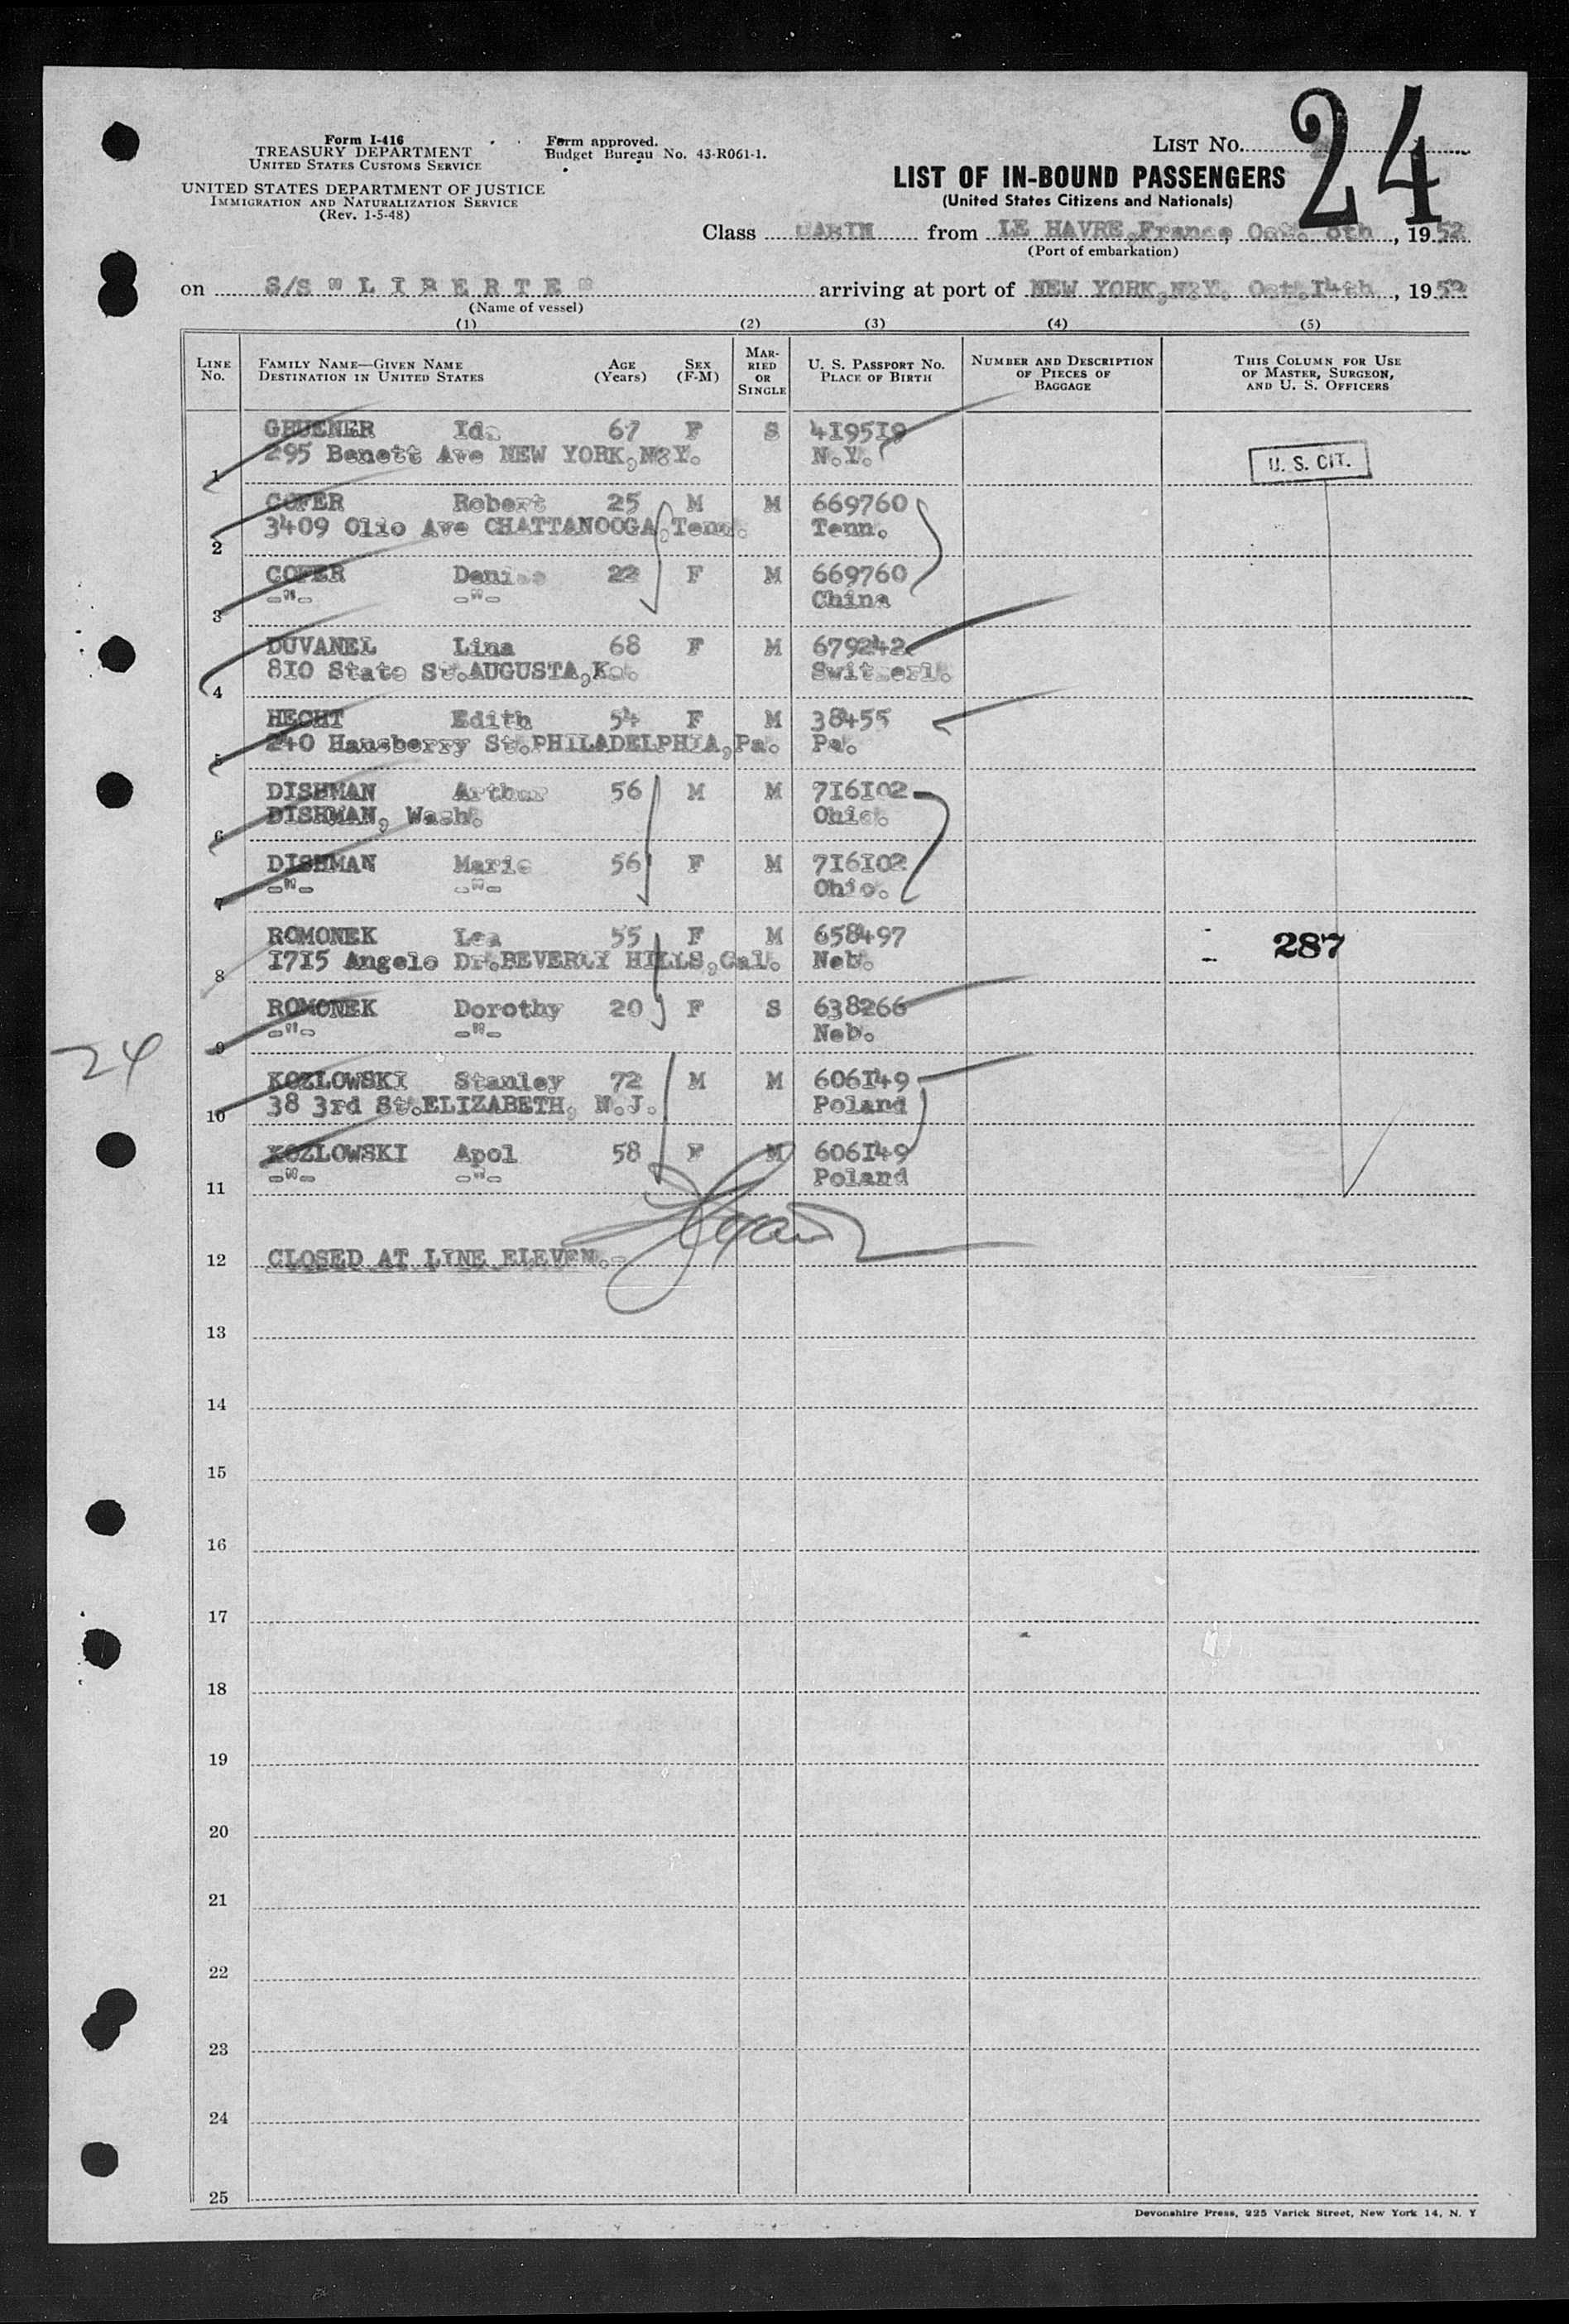 Form I-416
TREASURY DEPARTMENT
UNITED STATES CUSTOMS SERVICE
UNITED STATES DEPARTMENT OF JUSTICE
IMMIGRATION AND NATURALIZATION SERVICE
(Rev. 1-5-48)
Form approved.
Budget Bureau No. 43-R061-1.
LIST No. 24
LIST OF IN-BOUND PASSENGERS
(United States Citizens and Nationals)
Class CABIN from LE HAVRE,France, Oct. 8th, 1952
(Port of embarkation)
on S/S " L I B E R T E " arriving at port of NEW YORK,N:Y. Oct.I4th, 1952
(Name of vessel)
(1) (2) (3) (4) (5)
LINE No. FAMILY NAME—GIVEN NAME DESTINATION IN UNITED STATES AGE (Years) SEX (F-M) MARRIED OR SINGLE U. S. PASSPORT No. PLACE OF BIRTH NUMBER AND DESCRIPTION OF PIECES OF BAGGAGE THIS COLUMN FOR USE OF MASTER, SURGEON, AND U. S. OFFICERS
GRUENER Ida 67 F S 4I95I9
1 295 Benett Ave NEW YORK,N:Y. N.Y. U. S. CIT.
COFER Robert 25 M M 669760
2 3409 Olio Ave CHATTANOOGA,Tenn. Tenn.
COFER Denise 22 F M 669760
3 -"- -"- China
DUVANEL Lina 68 F M 679242
4 8I0 State St.AUGUSTA, Switzerl.
HECHT Edith 54 F M 38455
5 240 Hansberry St.PHILADELPHIA,Pa. Pa.
DISHMAN Arthur 56 M M 7I6I02
6 DISHMAN, Wash. Ohio.
DISHMAN Marie 56 F M 7I6I02
7 -"- -"- Ohio.
ROMONEK Lea 55 F M 658497 287
8 I7I5 Angelo Dr.BEVERLY HILLS,Cal. Neb.
ROMONEK Dorothy 20 F S 638266
9 -"- -"- Neb.
24
KOZLOWSKI Stanley 72 M M 606I49
10 38 3rd St.ELIZABETH, N.J. Poland
KOZLOWSKI Apol 58 F M 606I49
11 -"- -"- Poland
12 CLOSED AT LINE ELEVEN.-
13
14
15
16
17
18
19
20
21
22
23
24
25
Devonshire Press, 225 Varick Street, New York 14, N. Y